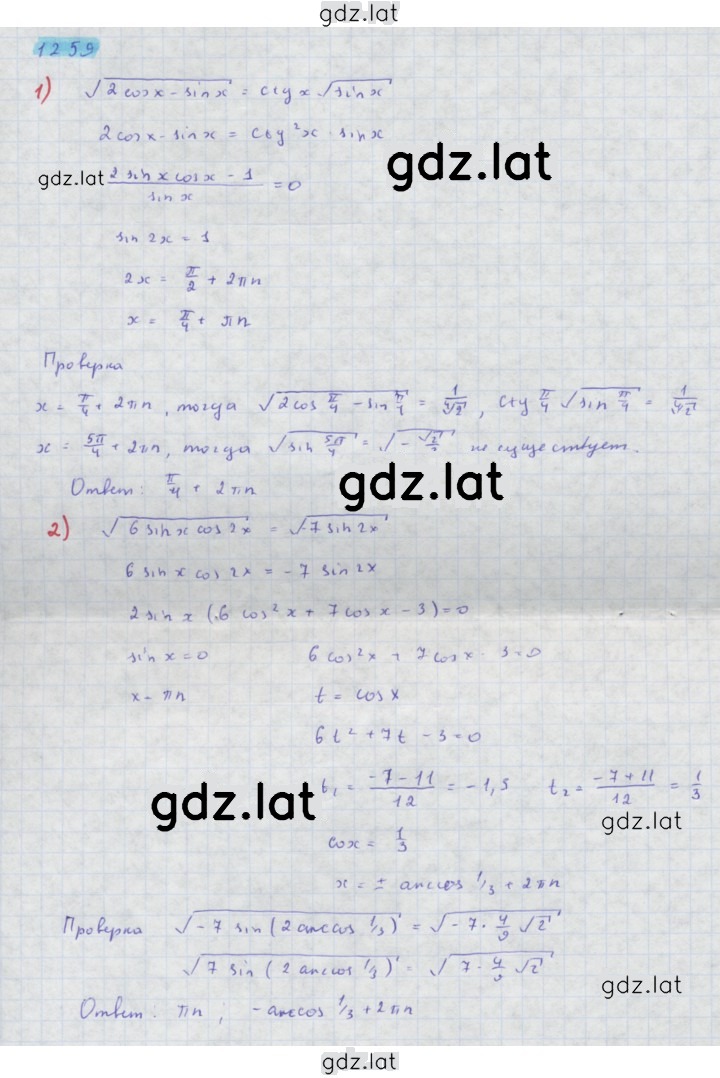 gdz.lat
1259
1) √(2cosx - sinx) = ctg x √(sinx)
2cosx - sinx = ctg²x · sinx
gdz.lat
gdz.lat (2 sinx cosx - 1)/(sinx) = 0
sin 2x = 1
2x = π/2 + 2πn
x = π/4 + πn
Проверка
x = π/4 + 2πn, тогда √(2cos π/4 - sin π/4) = 1/∜2, ctg π/4 √(sin π/4) = 1/∜2
x = 5π/4 + 2πn, тогда √(sin 5π/4) = √(-√2/2) не существует.
Ответ: π/4 + 2πn
gdz.lat
2) √(6 sinx cos2x) = √(-7 sin2x)
6 sinx cos2x = -7 sin2x
2 sinx (6 cos²x + 7cosx - 3) = 0
sinx = 0 6cos²x + 7cosx - 3 = 0
x = πn t = cosx
6t² + 7t - 3 = 0
t₁ = (-7-11)/12 = -1,5 t₂ = (-7+11)/12 = 1/3
gdz.lat
gdz.lat
cosx = 1/3
x = ± arccos 1/3 + 2πn
Проверка √(-7 sin(2arccos 1/3)) = √(-7 · 4/9 √2)
√(7 sin(2arccos 1/3)) = √(7 · 4/9 √2)
gdz.lat
Ответ: πn; -arccos 1/3 + 2πn
gdz.lat